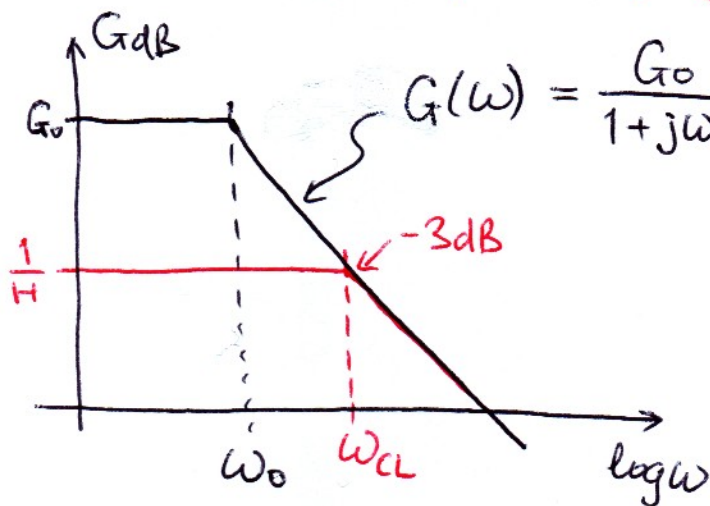 GdB
G(ω) = G₀ / 1+jω
G₀
-3dB
1/H
ω₀
ω_CL
logω